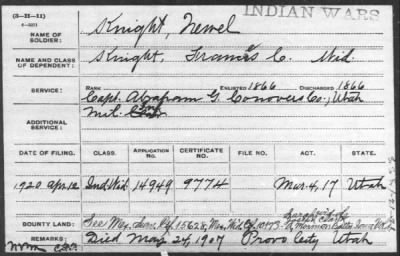 INDIAN WARS
(3-II-11)
NAME OF SOLDIER: Knight, Newel
NAME AND CLASS OF DEPENDENT: Knight, Frances C. Wid.
SERVICE: RANK ENLISTED 1866 DISCHARGED 1866
Capt. Abraham G. Conovers Co., Utah
ADDITIONAL SERVICE: Mil.
DATE OF FILING. CLASS. APPLICATION NO. CERTIFICATE NO. FILE NO. ACT. STATE.
1920 Apr. 12 Ind. Wid. 14949 9774 Mar. 4, 17 Utah
BOUNTY LAND: See Mex. Surv. Ctf. 15628, Mex. Wid. Ctf. Mormon Batt. Iowa
REMARKS: Died May 24, 1907 Provo City Utah